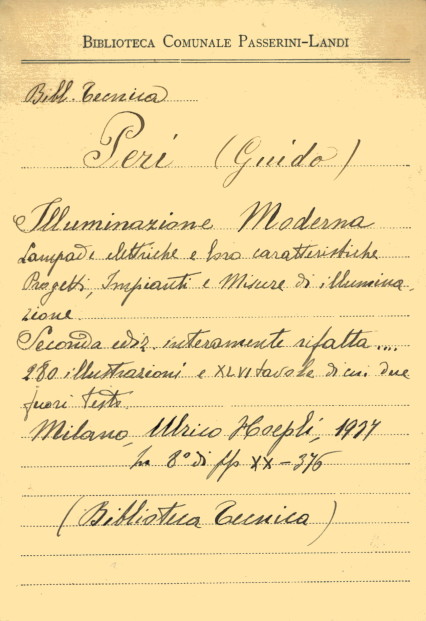 BIBLIOTECA COMUNALE PASSERINI-LANDI
Bibl. Tecnica
Peri (Guido)
Illuminazione Moderna
Lampade elettriche e loro caratteristiche
Progetti, Impianti e Misure di illumina-
zione
Seconda ediz. interamente rifatta....
280 illustrazioni e XLVI tavole di cui due
fuori testo
Milano, Ulrico Hoepli, 1937
in 8° di pp XX-376
(Biblioteca Tecnica)